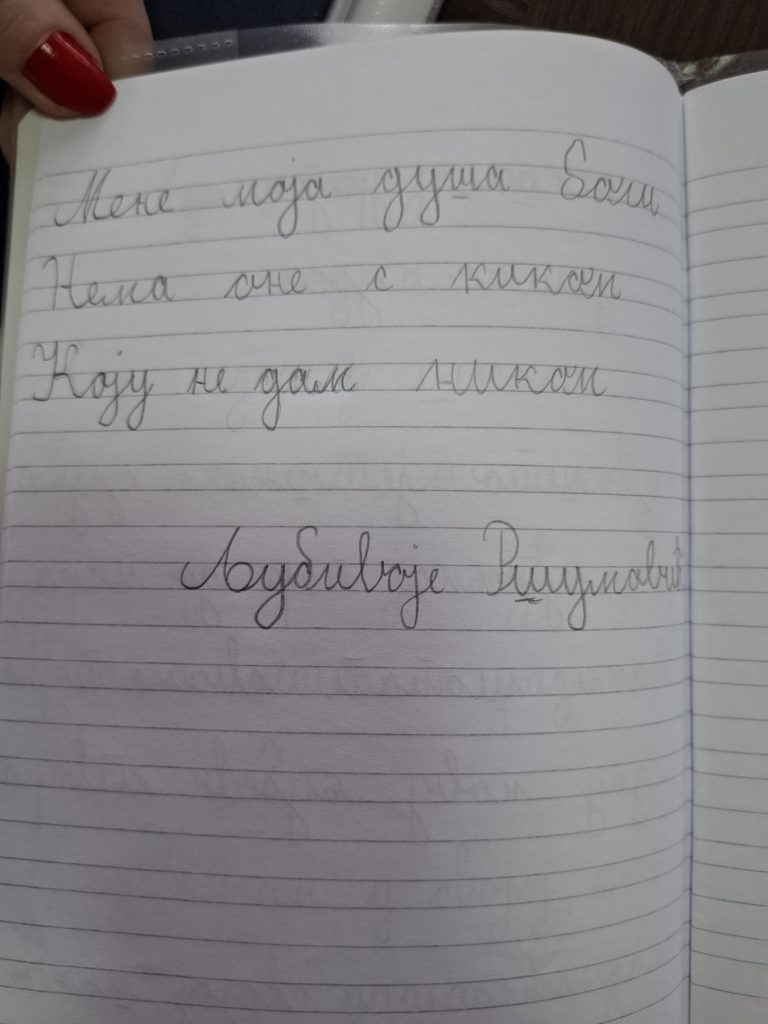 Мене моја душа боли
Нема оне с киком
Коју не дам ником
Љубивоје Ршумовић